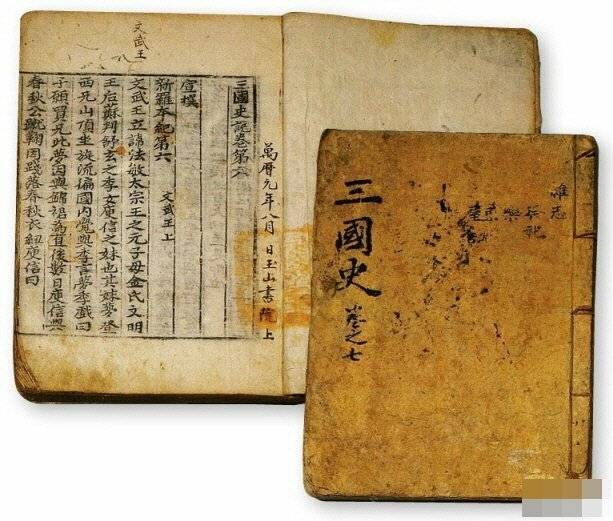 文武王
萬曆元年八月 日玉山書院上
三國史記卷第六
宣撰
新羅本紀第六 文武王上
文武王立諱法敏太宗王之元子母金氏文明
王后蘇判舒玄之季女庾信之妹也其妹夢登
西兄山頂坐旋流徧國內覺與季言夢季戲曰
子願買兄此夢因與錦裙為直後數日庾信與
春秋公蹴鞠因踐落春秋衣紐庾信曰
雜志
樂
三國史 卷之七